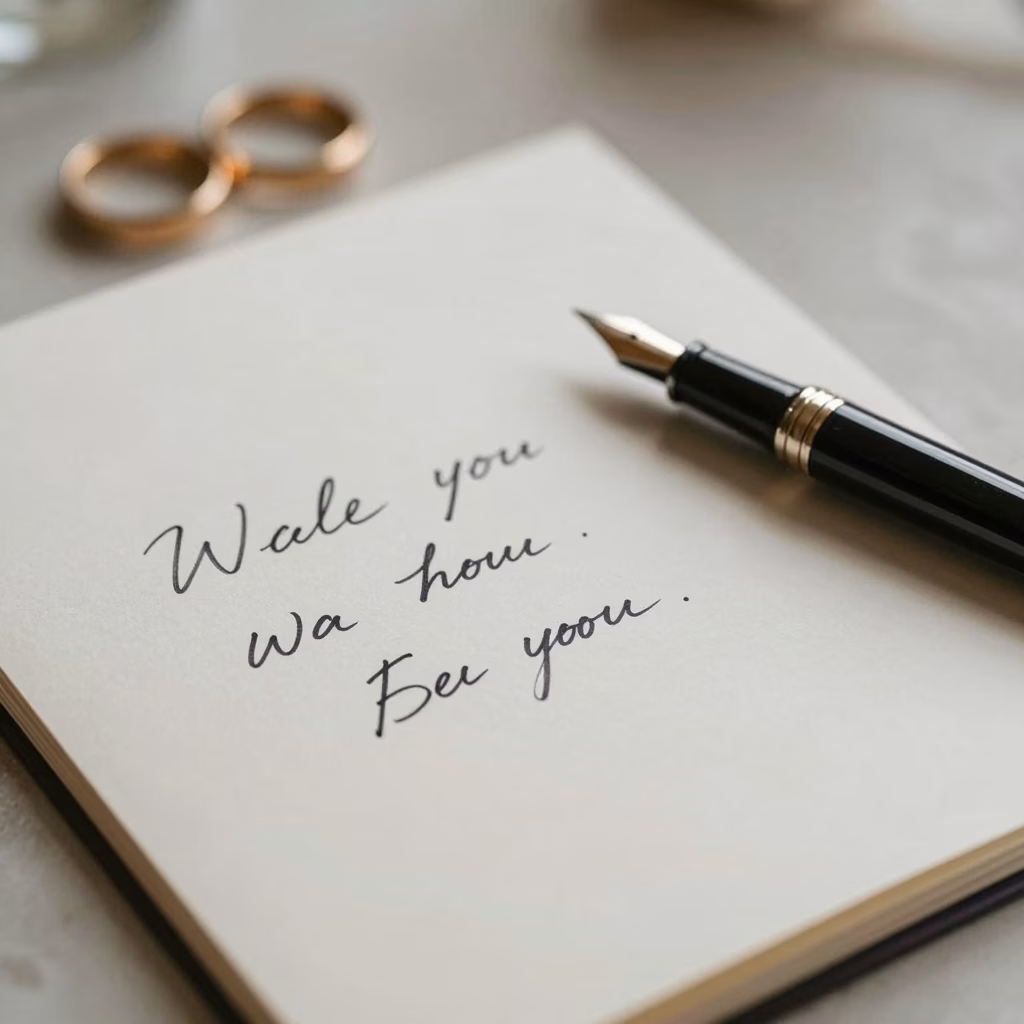 Wale you
wa hou.
Beu yoou.